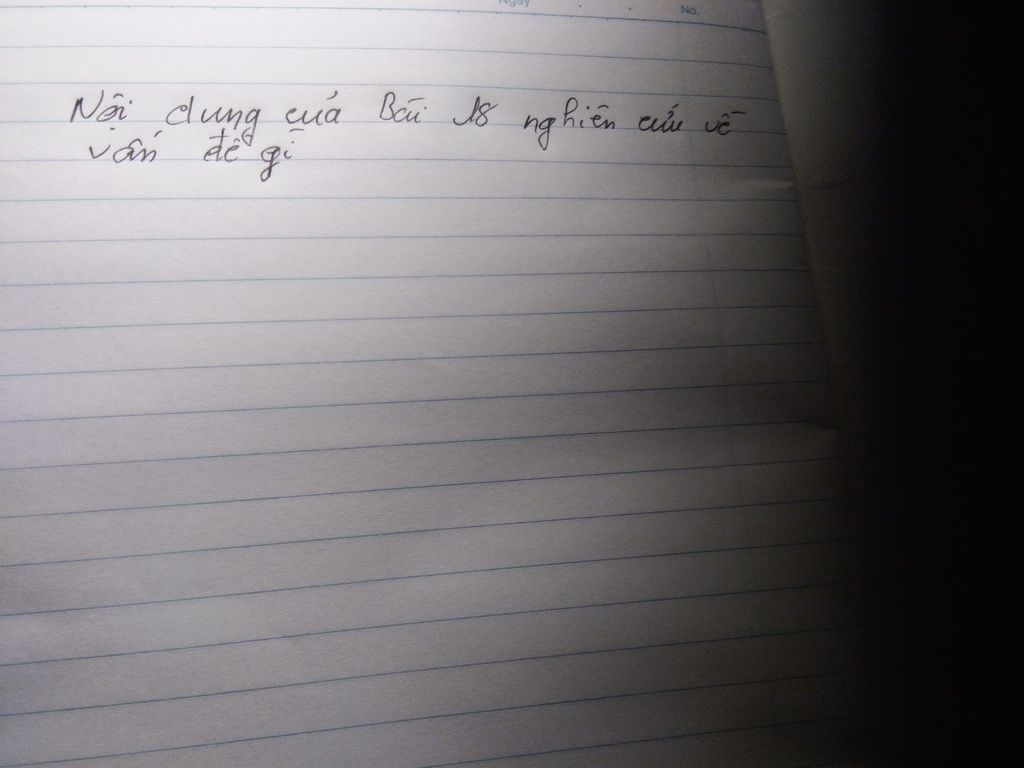 Ngày . . No.
Nội dung của Bài 18 nghiên cứu về
vấn đề gì